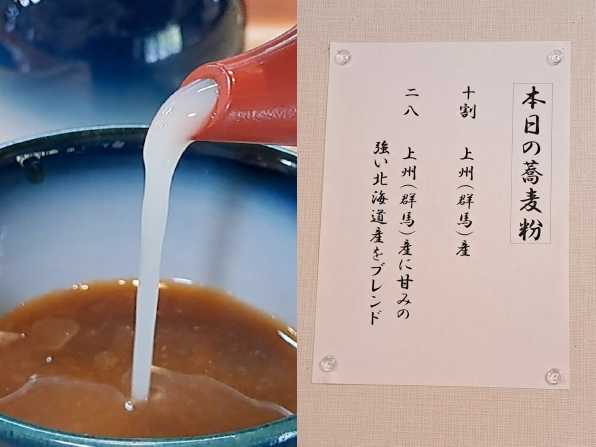 本日の蕎麦粉
十割　上州(群馬)産
二八　上州(群馬)産に甘みの
強い北海道産をブレンド